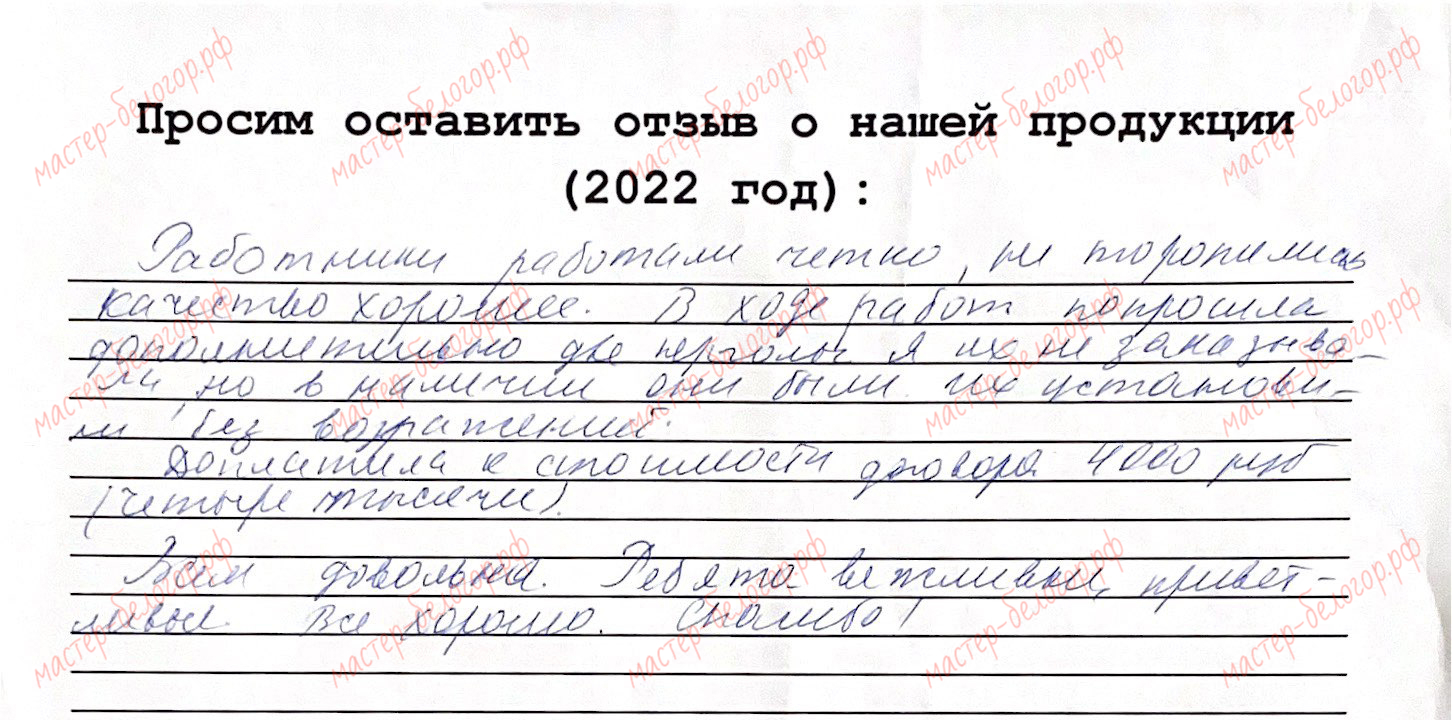 Просим оставить отзыв о нашей продукции
(2022 год):
Работники работали четко, не торопились
качество хорошее. В ходе работ попросила
дополнительно две перголы я их не заказыва-
ли, но в наличии они были. их установи-
ли без возражений.
Доплатила к стоимости договора 4000 руб
(четыре тысячи).
Всем довольна. Ребята вежливы, привет-
ливые. Все хорошо. Спасибо!
мастер-белогор.рф